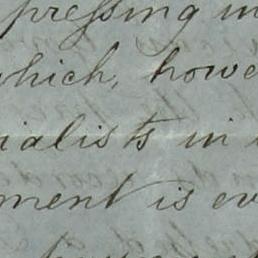 pressing in
which, howe
ialists in
ment is ev